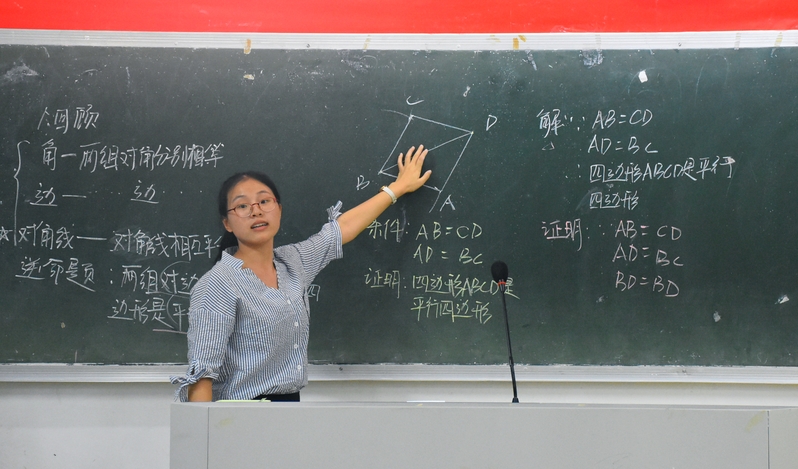 1.回顾
角一两组对角分别相等
边一……边……
★对角线——对角线相互平
逆命题:两组对边
四
边形是平
C
D
B
A
条件: AB=CD
AD=BC
证明: 四边形ABCD是
平行四边形
解∵ AB=CD
AD=BC
∴四边形ABCD是平行
四边形
证明:∵AB=CD
AD=BC
BD=BD